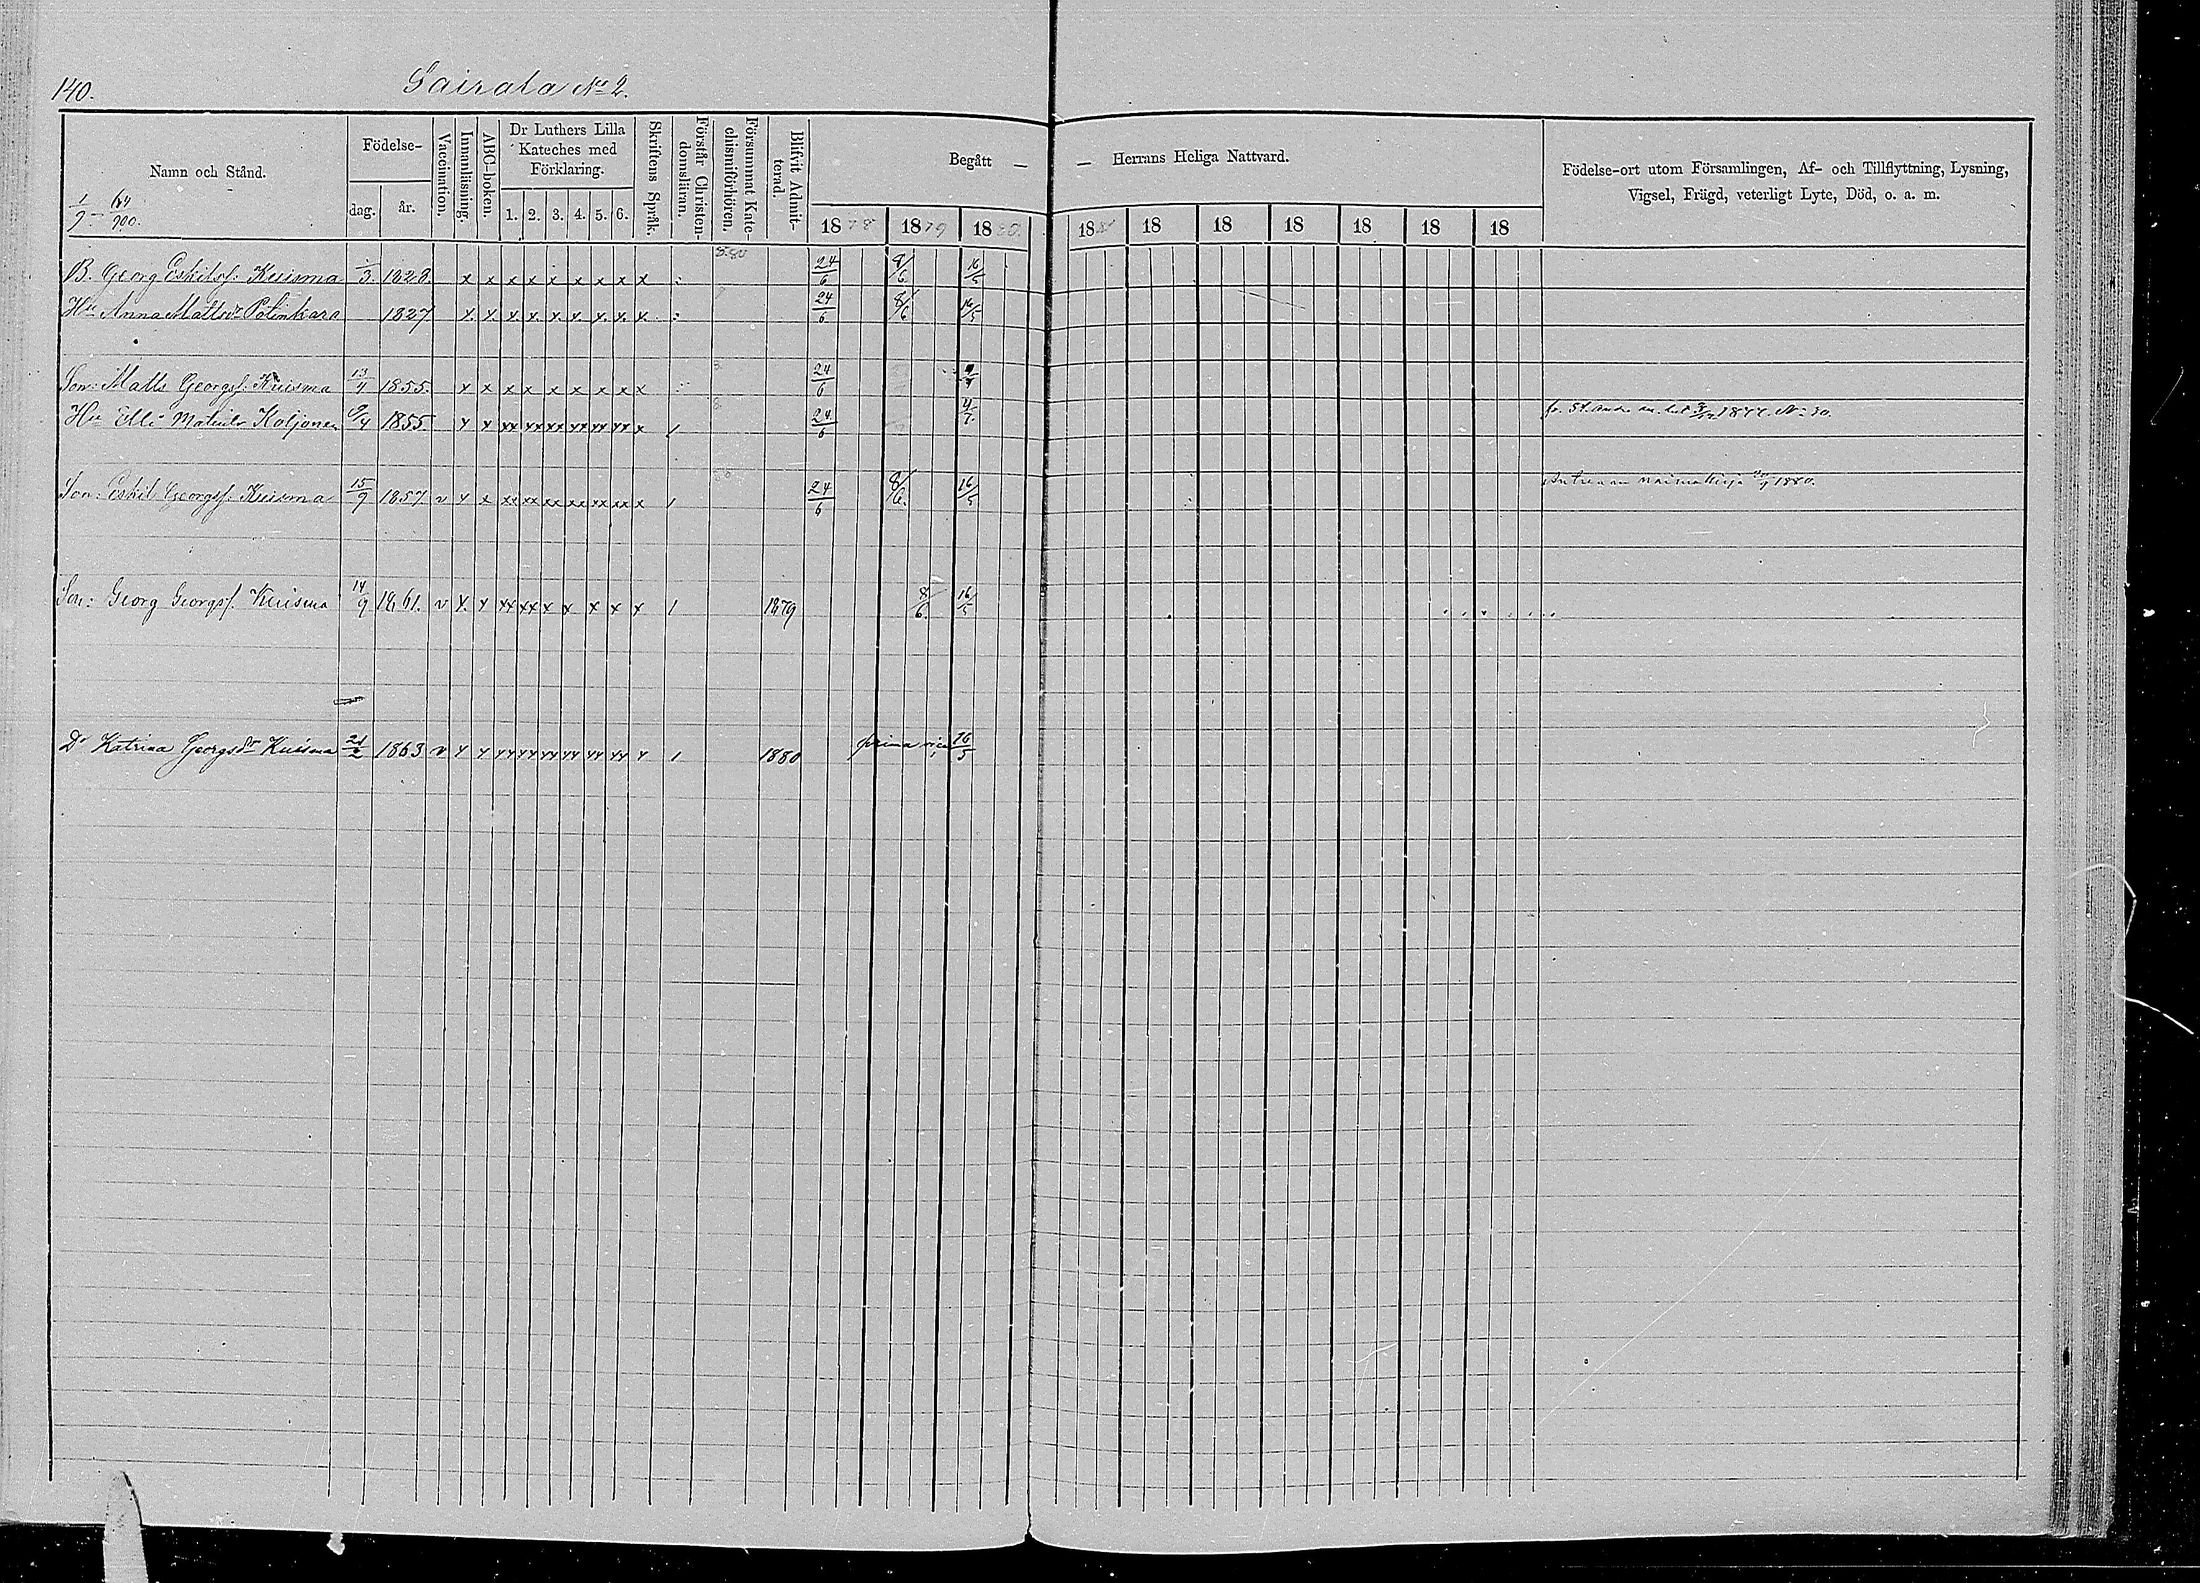 140.
Sairala No 2.
Namn och Stånd.
Födelse-
dag.
år.
Vaccination.
Innanläsning.
ABC-boken.
Dr Luthers Lilla
Kateches med
Förklaring.
1. 2. 3. 4. 5. 6.
Skriftens Språk.
Förstår Christen-
domsläran.
Försummat Kate-
chismiförhören.
Blifvit Admit-
terad.
Begått — — Herrans Heliga Nattvard.
1878 1879 1880. 1881 18 18 18 18 18 18
Födelse-ort utom Församlingen, Af- och Tillflyttning, Lysning,
Vigsel, Frägd, veterligt Lyte, Död, o. a. m.
1/7 — 64/700.
B. Georg Eskilsf. Kuisma 1/3. 1828. x x x x x x x x x 24/6 8/6 16/5
Hu Anna Mattsdr Pólönkara 1827 x x x x x x x x x 24/6 8/6 16/5
Son: Matts Georgsf. Kuisma 13/4 1855. x x x x x x x x x 24/6 4/7
Hu Elli Matsdr Koljonen 9/4 1855. x x xx xx xx xx xx xx x 1 24/6 4/7
Son: Eskil Georgsf. Kuisma 15/9 1857 v x x xx xx xx xx xx xx x 1 24/6 8/6. 16/5 1880.
Son: Georg Georgsf. Kuisma 14/9 1861. v x x xx xx x x x x x 1 1879 8/6. 16/5
Dr Katrina Georgsdr Kuisma 21/2 1863 v x x xx xx xx xx xx xx x 1 1880 prima vice 16/5